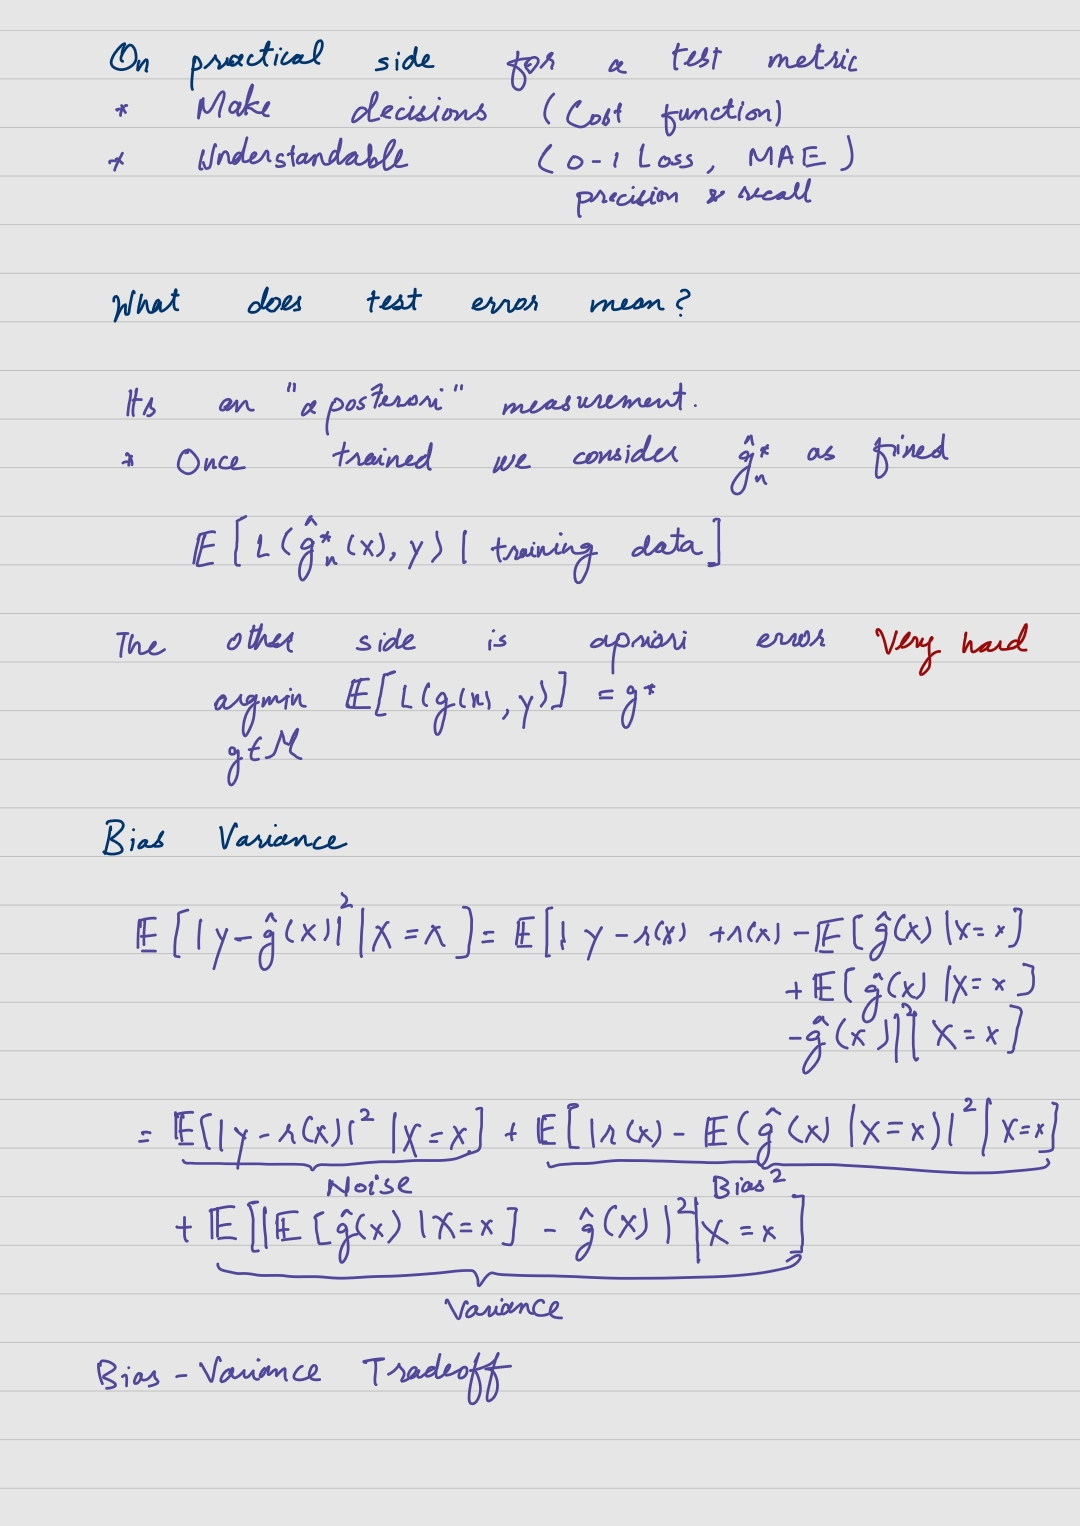 On practical side for a test metric
* Make decisions (Cost function)
* Understandable (0-1 Loss, MAE)
precision & recall
What does test error mean?
Its an "a posteriori" measurement.
* Once trained we consider ĝ*ₙ as fined
𝔼[L(ĝ*ₙ(x), y) | training data]
The other side is apriori error Very hard
argmin 𝔼[L(g(x), y)] = g*
g∈M
Bias Variance
𝔼[|y-ĝ(x)|² | X=x] = 𝔼[| y - r(x) + r(x) - 𝔼[ĝ(x) | X=x]
+ 𝔼[ĝ(x) | X=x]
- ĝ(x)|² | X=x]
= 𝔼[|y - r(x)|² | X=x] + 𝔼[|r(x) - 𝔼(ĝ(x) | X=x)|² | X=x]
Noise Bias²
+ 𝔼[|𝔼[ĝ(x) | X=x] - ĝ(x)|² | X=x]
Variance
Bias - Variance Tradeoff